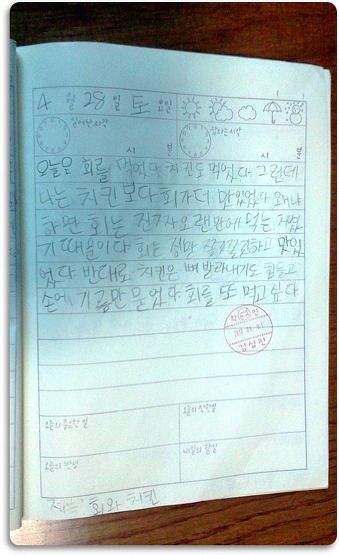 4월 28일 토요일
일어난시각 잠자는시각
시 분 시 분
오늘은 회를 먹었다 치킨도 먹었다 그런데
나는 치킨보다 회가더 맛있었다 왜냐
하면 회는 진짜 오랜만에 먹는
기때문이다 회는 쫄깃쫄깃하고 맛있
었다 반대로 치킨은 뼈 발라내기도 힘들고
손에 기름만 묻었다 회를 또 먹고싶다
확인
김성진
오늘의 중요한일 오늘의 착한일
오늘의 반성 내일의 할일
제목: 회와 치킨